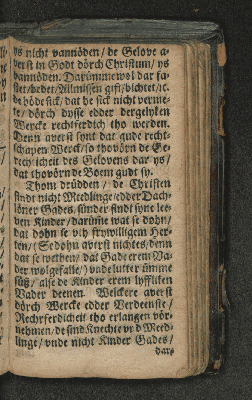 ys nicht vannöden / de Gelove a-
verst in Godt dörch Christum / ys
vannöden. Darümme wol dar fa-
stet / bedet / Allmissen gifft / bichtet / ꝛc.
de höde sick / dat he sick nicht verme-
te / dörch dysse edder dergelyken
Wercke rechtferdich tho werden.
Denn averst synt dat gude recht-
schapen Werck / so thovörn de Ge-
rechticheit des Gelovens dar ys /
dat thovörn de Boem gudt sy.
Thom drüdden / de Christen
sindt nicht Meedlinge edder Dach-
löner Gades, sünder sindt syne lee-
ven Kinder / darüme wat se dohn /
dat dohn se uth frywilligem Her-
ten / (Se dohn averst nichtes / denn
dat se wethen / dat Gade erem Va-
der wolgefalle /) unde lutter ümme
süß / alse de Kinder erem lyffliken
Vader deenen. Welckere averst
dörch Wercke edder Verdeenste /
Rechtferdicheit tho erlangen vör-
nehmen / de sind Knechte un d Meed-
linge / unde nicht Kinder Gades /
dar-